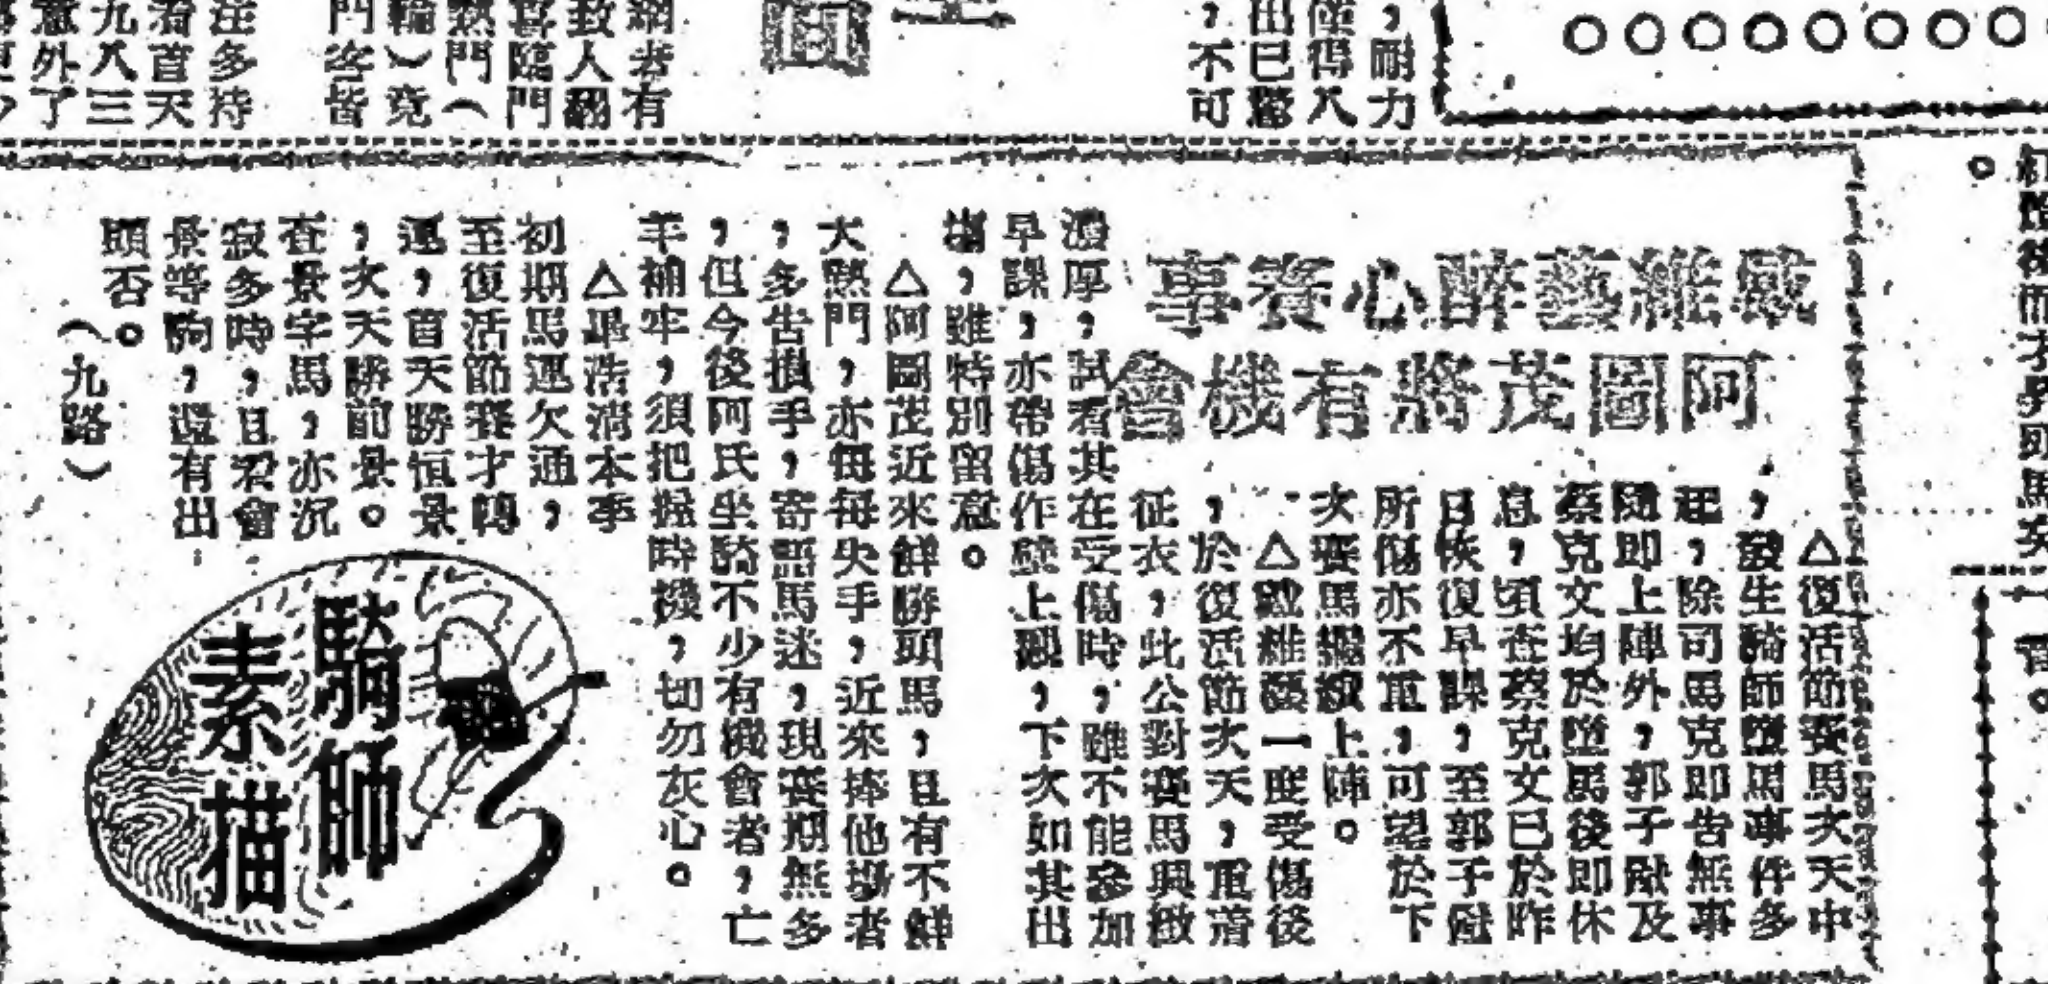 ，耐力
僅得八
出已驚
，不可
網者有
致人翻
喜臨門
熱門（
輪）竟
門客皆
注多持
看首天
九八三
意外了
紅
後而才
馬
。
戚維藝醉心賽事
阿圖茂將有機會
△復活節賽馬次天中
，發生騎師墮馬事件多
起，除司馬克即告無事
隨即上陣外，郭子猷及
蔡克文均於墮馬後即休
息，頃查蔡克文已於昨
日恢復早課，至郭子猷
所傷亦不重，可望於下
次賽馬繼續上陣。
△戚維藝一度受傷後
，於復活節次天，重着
征衣，此公對賽馬興緻
濃厚，試看其在受傷時，雖不能參加
早課，亦帶傷作壁上觀，下次如其出
場，雖特別留意。
△阿圖茂近來鮮勝頭馬，且有不鮮
大熱門，亦每每失手，近來捧他場者
，多告損手，寄語馬迷，現賽期無多
，但今後阿氏坐騎不少有機會者，亡
羊補牢，須把握時機，切勿灰心。
△畢浩淸本季
初期馬運欠通，
至復活節賽才轉
運，首天勝恒景
，次天勝前景。
查景字馬，亦沉
寂多時，且君會
景等駒，還有出
頭否。
（九路）
騎師
素描